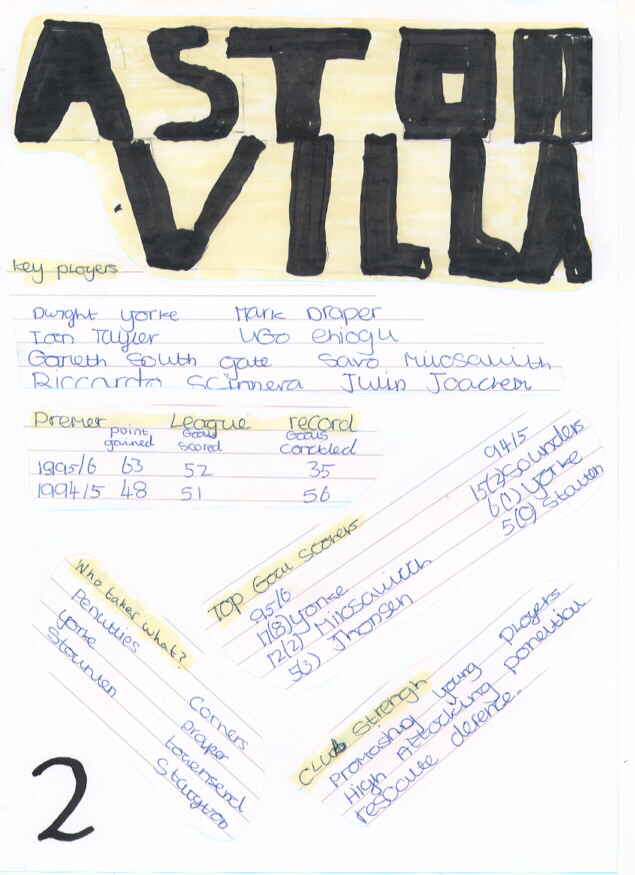 ASTON
VILLA
key players
Dwight yorke Mark Draper
Ian Tayler UGO ehiogu
Gareth South gate Savo Milosavith
Riccardo Scimera Julin Joachem
Premer League record
point gained Goals Scored Goals conceded
1995/6 63 52 35
1994/5 48 51 56
Top Goal Scorers
95/6
17(8) yorke
12(2) Milosavith
5(3) Jhonsen
94/5
15(2) Saunders
6(1) yorke
5(0) Staunen
Who takes what?
Penulties
yorke
Staunten
Corners
Draper
townsend
Club Strengh
Promosing young players
High Attacking
2